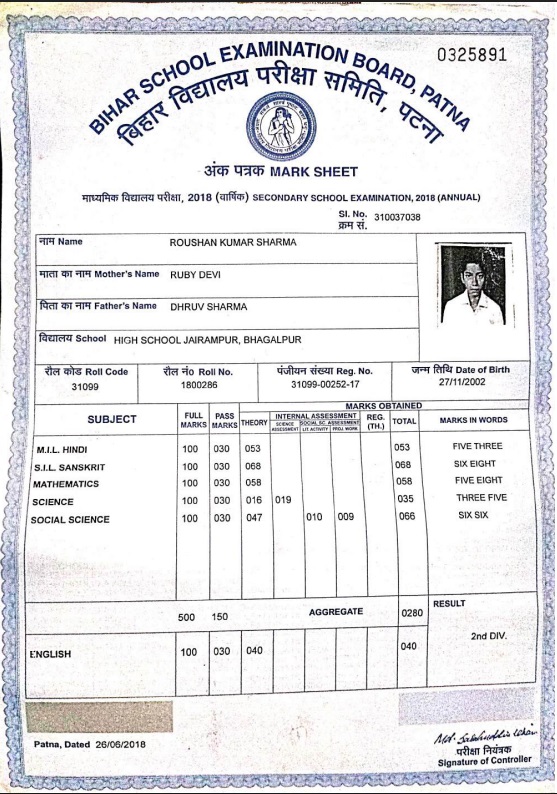 0325891
BIHAR SCHOOL EXAMINATION BOARD, PATNA
बिहार विद्यालय परीक्षा समिति, पटना
अंक पत्रक MARK SHEET
माध्यमिक विद्यालय परीक्षा, 2018 (वार्षिक) SECONDARY SCHOOL EXAMINATION, 2018 (ANNUAL)
Sl. No. 310037038
क्रम सं.
नाम Name ROUSHAN KUMAR SHARMA
माता का नाम Mother's Name RUBY DEVI
पिता का नाम Father's Name DHRUV SHARMA
विद्यालय School HIGH SCHOOL JAIRAMPUR, BHAGALPUR
रौल कोड Roll Code रौल नं० Roll No. पंजीयन संख्या Reg. No. जन्म तिथि Date of Birth
31099 1800286 31099-00252-17 27/11/2002
MARKS OBTAINED
SUBJECT FULL MARKS PASS MARKS THEORY INTERNAL ASSESSMENT REG. (TH.) TOTAL MARKS IN WORDS
SCIENCE ASSESSMENT SOCIAL SC. ASSESSMENT
LIT ACTIVITY PROJ. WORK
M.I.L. HINDI 100 030 053 053 FIVE THREE
S.I.L. SANSKRIT 100 030 068 068 SIX EIGHT
MATHEMATICS 100 030 058 058 FIVE EIGHT
SCIENCE 100 030 016 019 035 THREE FIVE
SOCIAL SCIENCE 100 030 047 010 009 066 SIX SIX
500 150 AGGREGATE 0280 RESULT
2nd DIV.
ENGLISH 100 030 040 040
Patna, Dated 26/06/2018
परीक्षा नियंत्रक
Signature of Controller